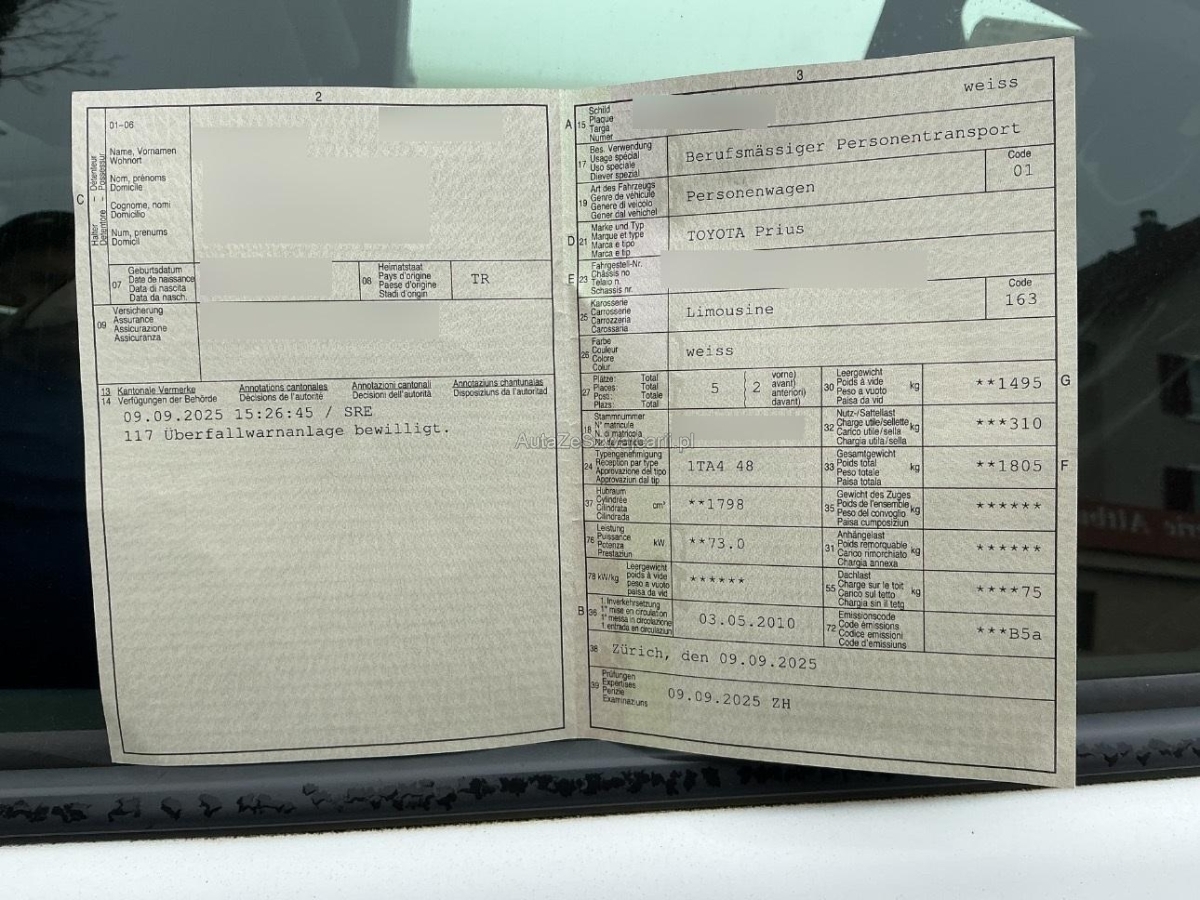 2
01-06
C
Halter – Détenteur
Detentore – Possessur
Name, Vornamen
Wohnort
Nom, prénoms
Domicile
Cognome, nomi
Domicilio
Num, prenums
Domicil
07
Geburtsdatum
Date de naissance
Data di nascita
Data da nasch.
08
Heimatstaat
Pays d'origine
Paese d'origine
Stadi d'origin
TR
09
Versicherung
Assurance
Assicurazione
Assicuranza
13 Kantonale Vermerke Annotations cantonales Annotazioni cantonali Annotaziuns chantunalas
14 Verfügungen der Behörde Décisions de l'autorité Decisioni dell'autorità Disposiziuns da l'autoritad
09.09.2025 15:26:45 / SRE
117 Überfallwarnanlage bewilligt.
3
A 15
Schild
Plaque
Targa
Numer
weiss
17
Bes. Verwendung
Usage spécial
Uso speciale
Diever spezial
Berufsmässiger Personentransport
19
Art des Fahrzeugs
Genre de véhicule
Genere di veicolo
Gener dal vehichel
Personenwagen
Code
01
D 21
Marke und Typ
Marque et type
Marca e tipo
Marca e tip
TOYOTA Prius
E 23
Fahrgestell-Nr.
Châssis no
Telaio n.
Schassis nr.
25
Karosserie
Carrosserie
Carrozzeria
Carossaria
Limousine
Code
163
26
Farbe
Couleur
Colore
Colur
weiss
27
Plätze: Total
Places: Total
Post.: Totale
Plazs: Total
5
2
vorne)
avant)
anteriori)
davant)
30
Leergewicht
Poids à vide
Peso a vuoto
Paisa da vid
kg
**1495
G
18
Stammnummer
N° matricule
N. di matricola
Nr. da matricla
32
Nutz-/Sattellast
Charge utile/sellette
Carico utile/sella
Chargia utila/sella
kg
***310
24
Typengenehmigung
Réception par type
Approvazione del tipo
Approvaziun dal tip
1TA4 48
33
Gesamtgewicht
Poids total
Peso totale
Paisa totala
kg
**1805
F
37
Hubraum
Cylindrée
Cilindrata
Cilindrada
cm³
**1798
35
Gewicht des Zuges
Poids de l'ensemble
Peso del convoglio
Paisa cumposiziun
kg
******
76
Leistung
Puissance
Potenza
Prestaziun
kW
**73.0
31
Anhängelast
Poids remorquable
Carico rimorchiato
Chargia annexa
kg
******
78 kW/kg
Leergewicht
poids à vide
peso a vuoto
paisa da vid
******
55
Dachlast
Charge sur le toit
Carico sul tetto
Chargia sin il tetg
kg
****75
B 36
1. Inverkehrsetzung
1re mise en circulation
1a messa in circolazione
1. entrada en circulaziun
03.05.2010
72
Emissionscode
Code émissions
Codice emissioni
Code d'emissiuns
***B5a
38 Zürich, den 09.09.2025
39
Prüfungen
Expertises
Perizie
Examinaziuns
09.09.2025 ZH